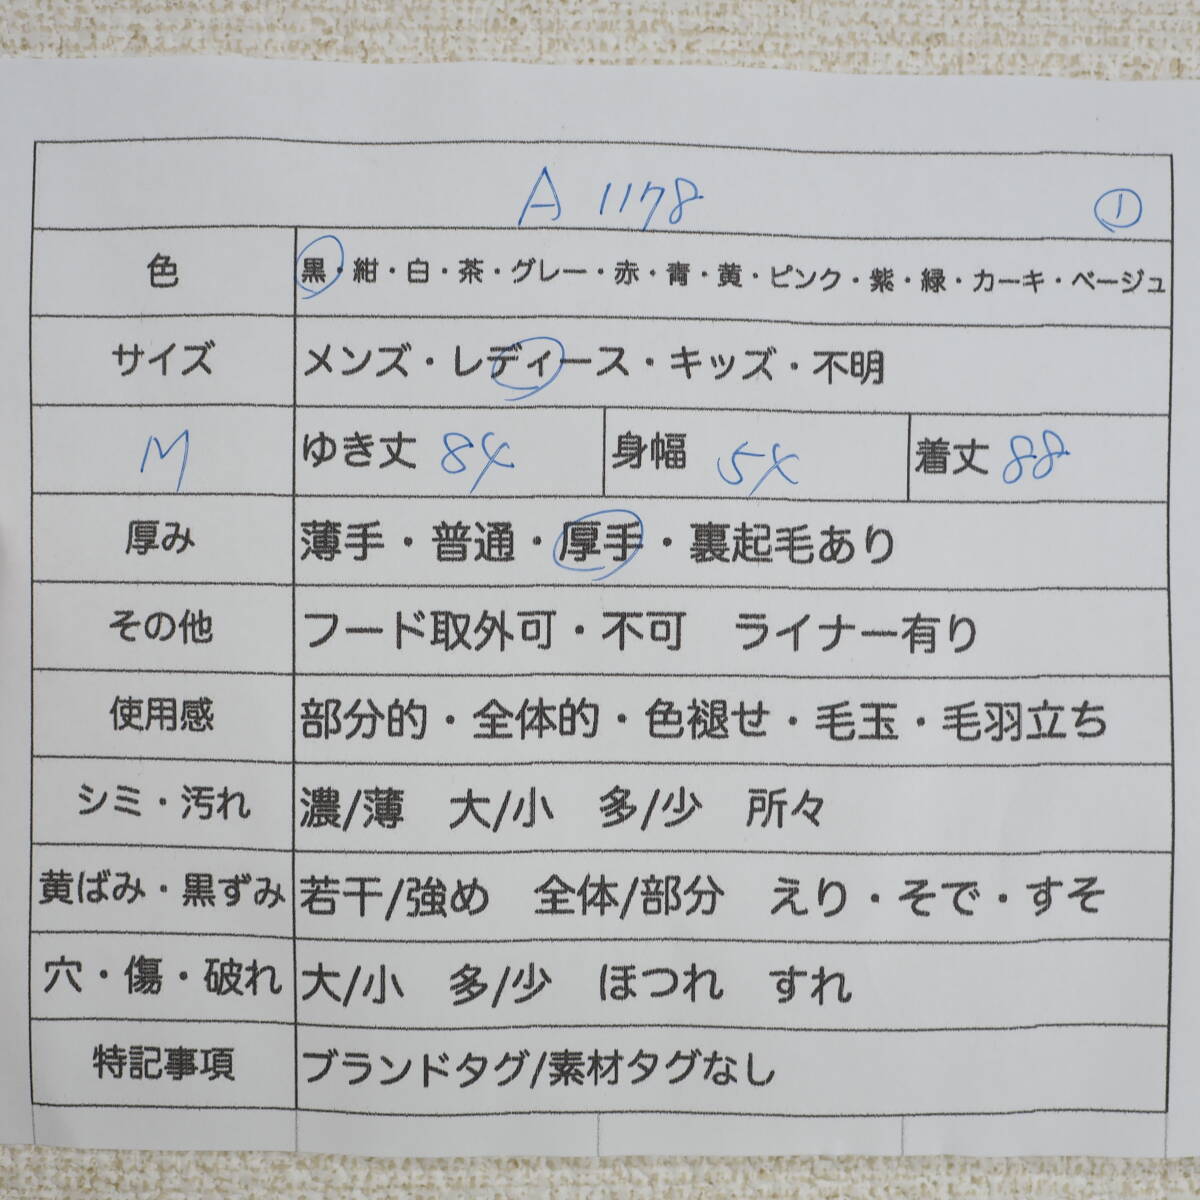 A 1178 ①
色 黒・紺・白・茶・グレー・赤・青・黄・ピンク・紫・緑・カーキ・ベージュ
サイズ メンズ・レディース・キッズ・不明
M ゆき丈 84 身幅 54 着丈 88
厚み 薄手・普通・厚手・裏起毛あり
その他 フード取外可・不可 ライナー有り
使用感 部分的・全体的・色褪せ・毛玉・毛羽立ち
シミ・汚れ 濃/薄 大/小 多/少 所々
黄ばみ・黒ずみ 若干/強め 全体/部分 えり・そで・すそ
穴・傷・破れ 大/小 多/少 ほつれ すれ
特記事項 ブランドタグ/素材タグなし